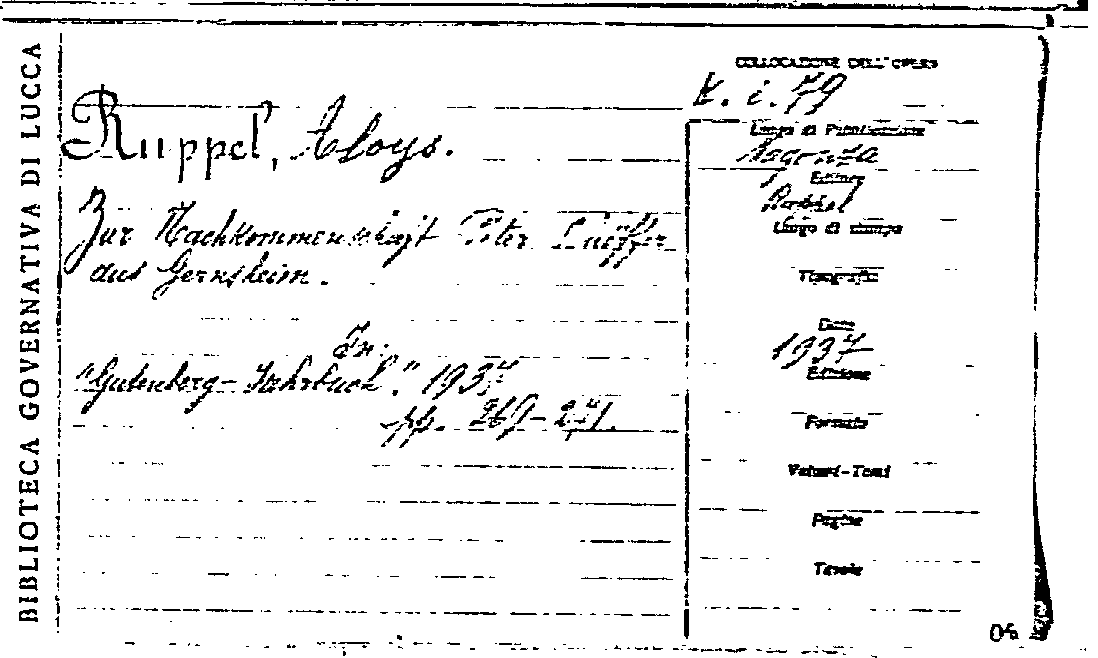 BIBLIOTECA GOVERNATIVA DI LUCCA
Ruppel, Aloys.
Zur Nachkommenschaft Peter
aus Gernsheim.
In:
"Gutenberg-Jahrbuch". 1937
pp. 269-271.
COLLOCAZIONE DELL'OPERA
i. 79
Luogo di Pubblicazione
Magonza
Editore
Luogo di stampa
Tipografia
Data
1937
Edizione
Formato
Volumi-Tomi
Pagine
Tavole
06